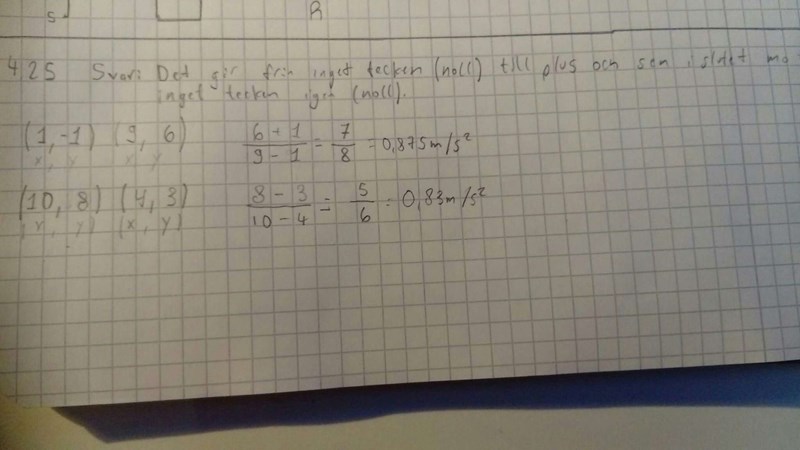 s
R
425 Svar: Det går från inget tecken (noll) till plus och sen i slutet mo
inget tecken igen (noll).
(1,-1) (9, 6) 6+1/9-1 = 7/8 = 0,875 m/s²
x, y x, y
(10, 8) (4, 3) 8-3/10-4 = 5/6 = 0,83 m/s²
(x, y) (x, y)